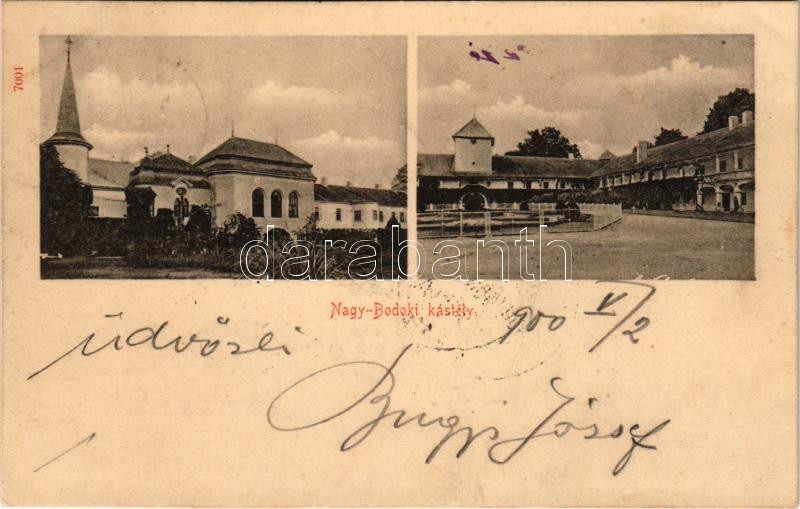 7001
darabanth
Nagy-Bodoki kástély.
900 V/2
üdvözli
József